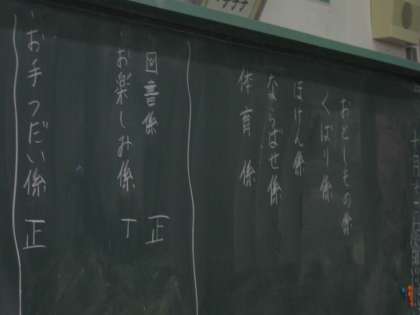 おとしもの係
くばり係
ほけん係
ならばせ係
体育係
図書係 正
お楽しみ係 T
お手つだい係 正